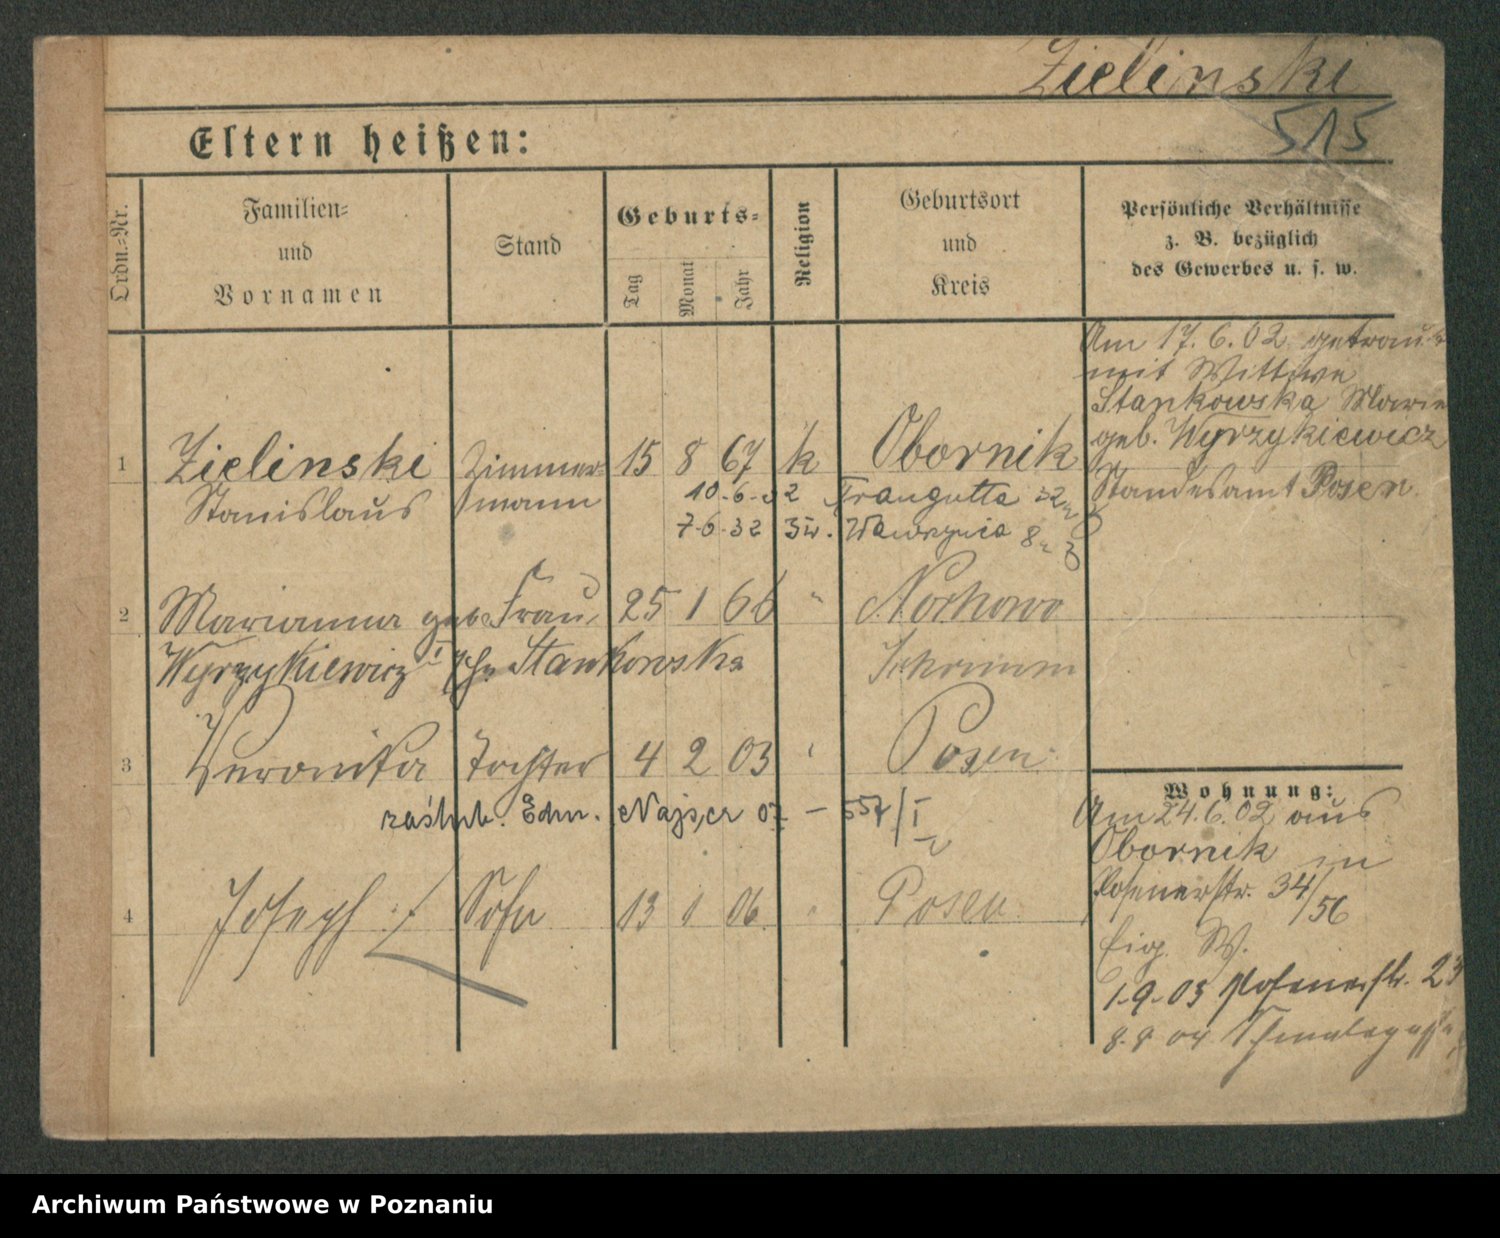 Zielinski
515
Eltern heißen:
Ordn.=Nr.
Familien=
und
Vornamen
Stand
Geburts=
Tag
Monat
Jahr
Religion
Geburtsort
und
Kreis
Persönliche Verhältnisse
z. B. bezüglich
des Gewerbes u. s. w.
Am 17. 6. 02 getraut
mit Wittwe
Stankowska Marie
geb. Wyrzykiewicz
Standesamt Posen.
1 Zielinski Zimmer= 15 8 67 k Obornik
Stanislaus mann
10-6-32 Traugutta 32
7-6-32 Św. Wawrzyńca 8
2 Marianna geb. Frau, 25 1 66 " Nochowo
Wyrzykiewicz Stankowska Schrimm
3 Veronika Tochter 4 2 03 " Posen
zaślub. Edm. Najscr 07 — 557/I
4 Joseph Sohn 13 1 06 " Posen
Wohnung:
Am 24. 6. 02 aus
Obornik in
Posenerstr. 34/56
Eig. W.
1-9-03 Posenerstr. 23
8. 9 04
Archiwum Państwowe w Poznaniu